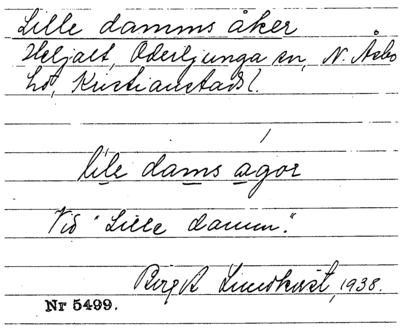 Lille damms åker
Heljalt, Oderljunga sn, N. Åsbo
hd, Kristianstads l.
lile dams agor
Vid "Lille damm".
Birgit Lundkvist, 1938.
Nr 5499.